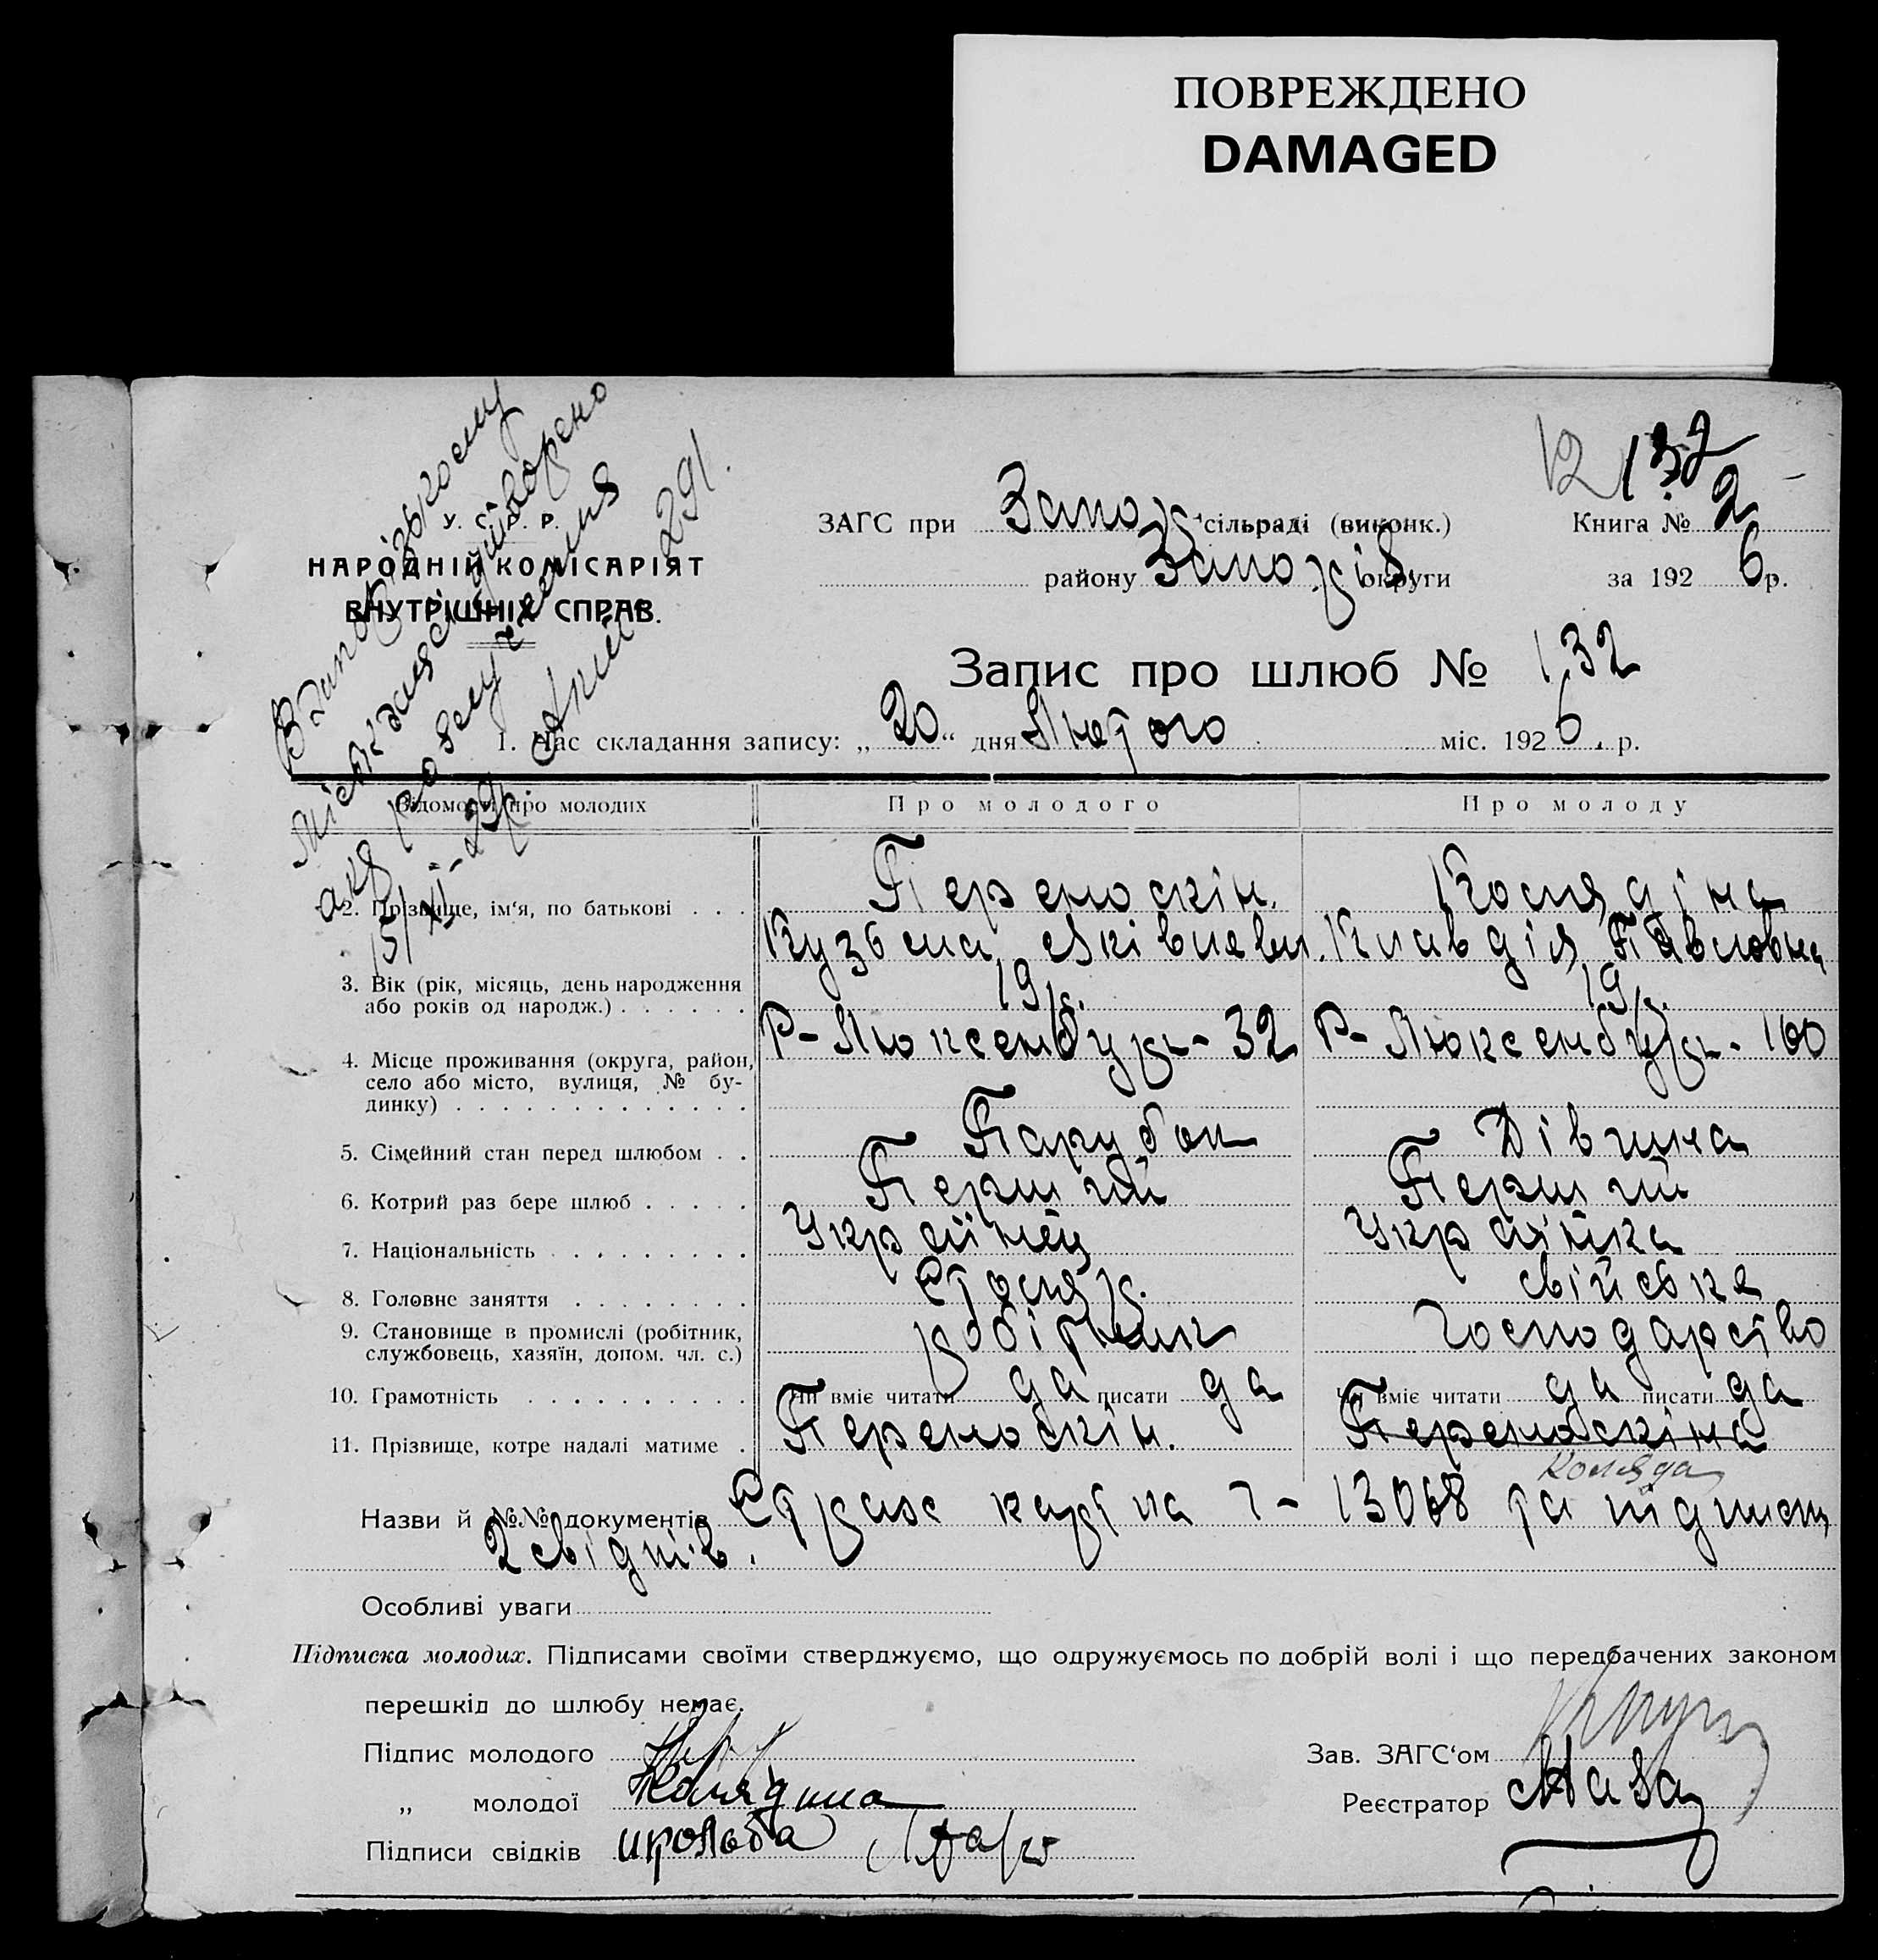 ПОВРЕЖДЕНО
DAMAGED
12 132
У. С. Р. Р.
НАРОДНІЙ КОМІСАРІЯТ
ВНУТРІШНІХ СПРАВ.
Запорізькому
міськзагсі утворено
акт розлучення
15/XI-29р. Акт 291.
ЗАГС при Запор. сільраді (виконк.) Книга № 2
району Запоріз. округи за 1926 р.
Запис про шлюб № 132
1. Час складання запису: „20“ дня Лютого міс. 1926 р.
Відомості про молодих Про молодого Про молоду
2. Прізвище, ім‘я, по батькові . . . Перемоскін. Колядіна
Кузьма Клавдія Павловна
3. Вік (рік, місяць, день народження 19 р. 19 р.
або років од народж.) . . . . . .
Р-Люксембург-32 Р-Люксембург-100
4. Місце проживання (округа, район,
село або місто, вулиця, № бу-
динку) . . . . . . . . . . . . .
5. Сімейний стан перед шлюбом . . Парубок Дівчина
6. Котрий раз бере шлюб . . . . . Перший Перший
7. Національність . . . . . . . . . Українец Українка
8. Головне заняття . . . . . . . . Столяр. свійське
9. Становище в промислі (робітник, робітник господарство
службовець, хазяїн, допом. чл. с.)
10. Грамотність . . . . . . . . . . Чи вміє читати да писати да Чи вміє читати да писати да
11. Прізвище, котре надалі матиме . Перемоскін. Перемоскіна
Коляда
Назви й №№ документів Страх картка ч- 13068 та підписи
2 свідків.
Особливі уваги
Підписка молодих. Підписами своїми стверджуємо, що одружуємось по добрій волі і що передбачених законом
перешкід до шлюбу немає.
Підпис молодого Зав. ЗАГС‘ом
„ молодої Колядина Реєстратор
Підписи свідків